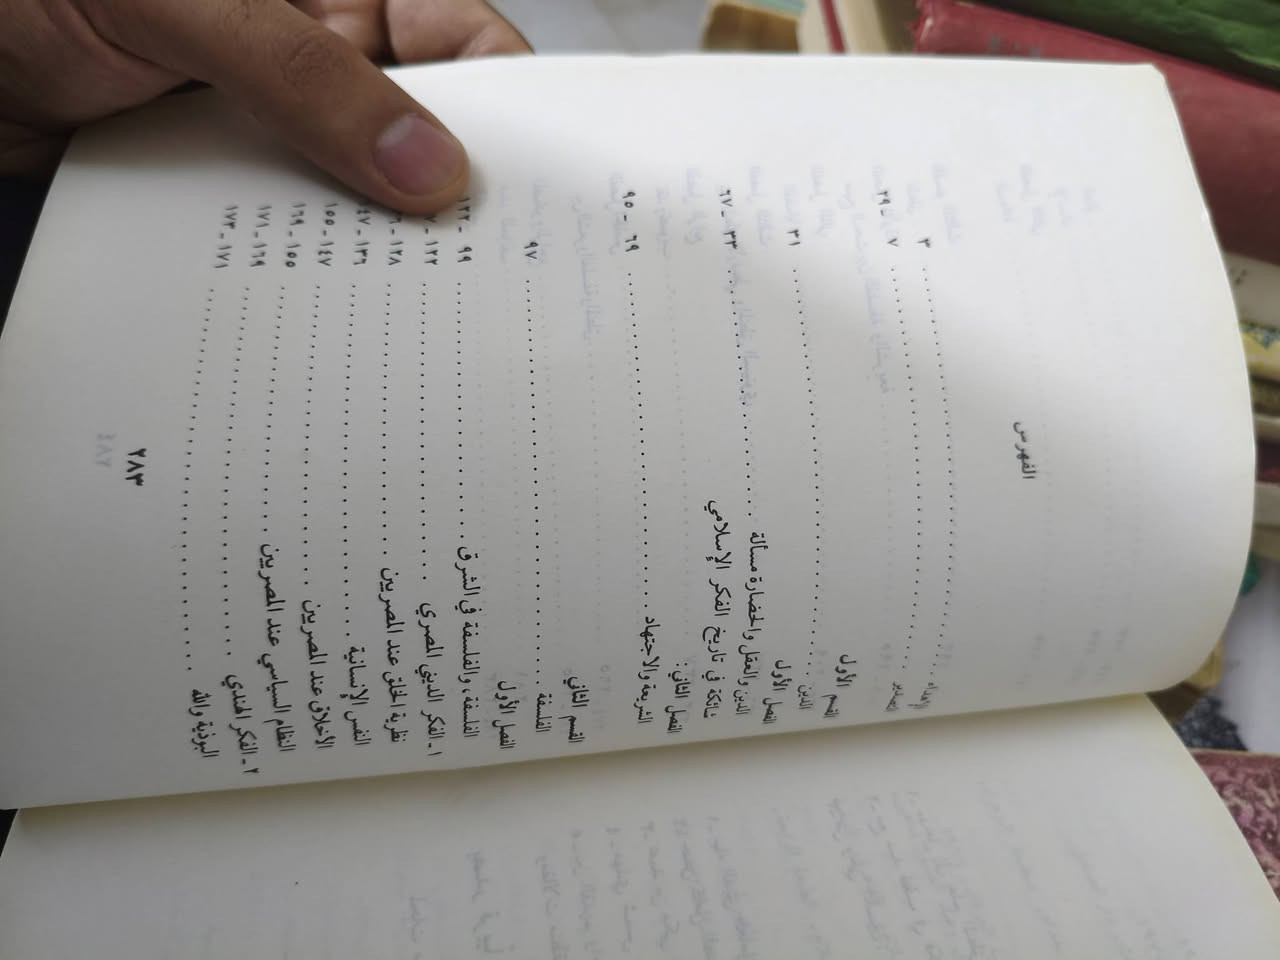 الفهرس
الإهداء . . . . . . . . . . . . . . . . . . . . . . . . ٣
تصدير . . . . . . . . . . . . . . . . . . . . . . . . ٧ - ٢٩
القسم الأول
الدين . . . . . . . . . . . . . . . . . . . . . . . . ٣١
الفصل الأول
الدين والعقل والحضارة مسألة
شائكة في تاريخ الفكر الإسلامي . . . . . . . . . . . . ٣٣ - ٦٧
الفصل الثاني:
الشريعة والاجتهاد . . . . . . . . . . . . . . . . . . ٦٩ - ٩٥
القسم الثاني
الفلسفة . . . . . . . . . . . . . . . . . . . . . . . . ٩٧
الفصل الأول
الفلسفة، والفلسفة في الشرق . . . . . . . . . . . . ٩٩ - ١٢٢
١ - الفكر الديني المصري . . . . . . . . . . . . . . ١٢٢
نظرية الخلق عند المصريين . . . . . . . . . . . . . . ١٢٨
النفس الإنسانية . . . . . . . . . . . . . . . . . . ١٣٦ - ١٤٧
الأخلاق عند المصريين . . . . . . . . . . . . . . . . ١٤٧ - ١٥٥
النظام السياسي عند المصريين . . . . . . . . . . . . ١٥٥ - ١٦٩
٢ - الفكر الهندي . . . . . . . . . . . . . . . . . . ١٦٩ - ١٧١
البوذية والله . . . . . . . . . . . . . . . . . . . . ١٧١ - ١٧٣
٢٨٣